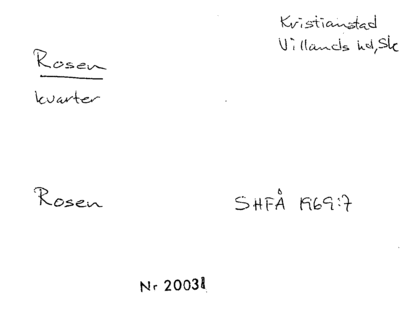 Kristianstad
Villands hd, Sk
Rosen
kvarter
Rosen SHFÅ 1969:7
Nr 20031